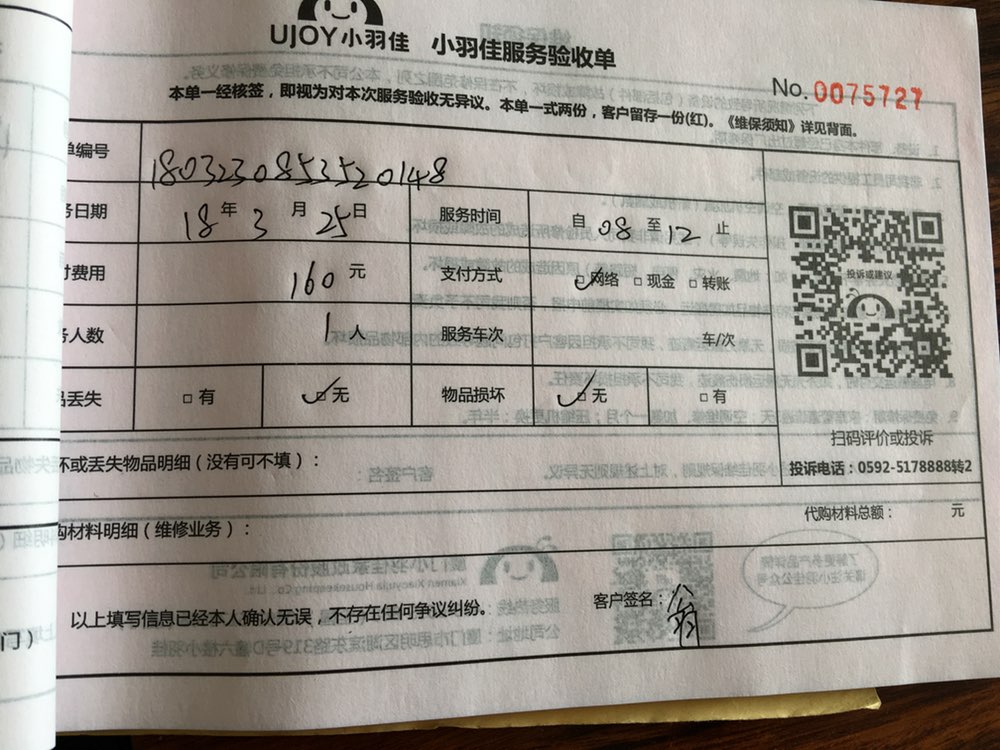 UJOY小羽佳 小羽佳服务验收单
No. 0075727
本单一经核签，即视为对本次服务验收无异议。本单一式两份，客户留存一份(红)。《维保须知》详见背面。
单编号 1803230853520148
务日期 18年3月25日 服务时间 自08至12止
付费用 160元 支付方式 ☑网络 □现金 □转账
务人数 1人 服务车次 车/次
品丢失 □有 ☑无 物品损坏 ☑无 □有
投诉或建议
扫码评价或投诉
投诉电话：0592-5178888转2
坏或丢失物品明细（没有可不填）：
购材料明细（维修业务）： 代购材料总额： 元
以上填写信息已经本人确认无误，不存在任何争议纠纷。 客户签名：
门）